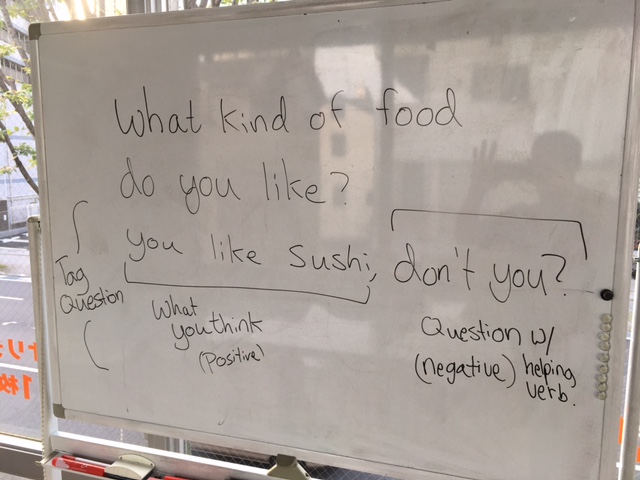 What kind of food
do you like?
you like Sushi, don't you?
Tag
Question
What
you think
(Positive)
Question w/
(negative) helping
verb.